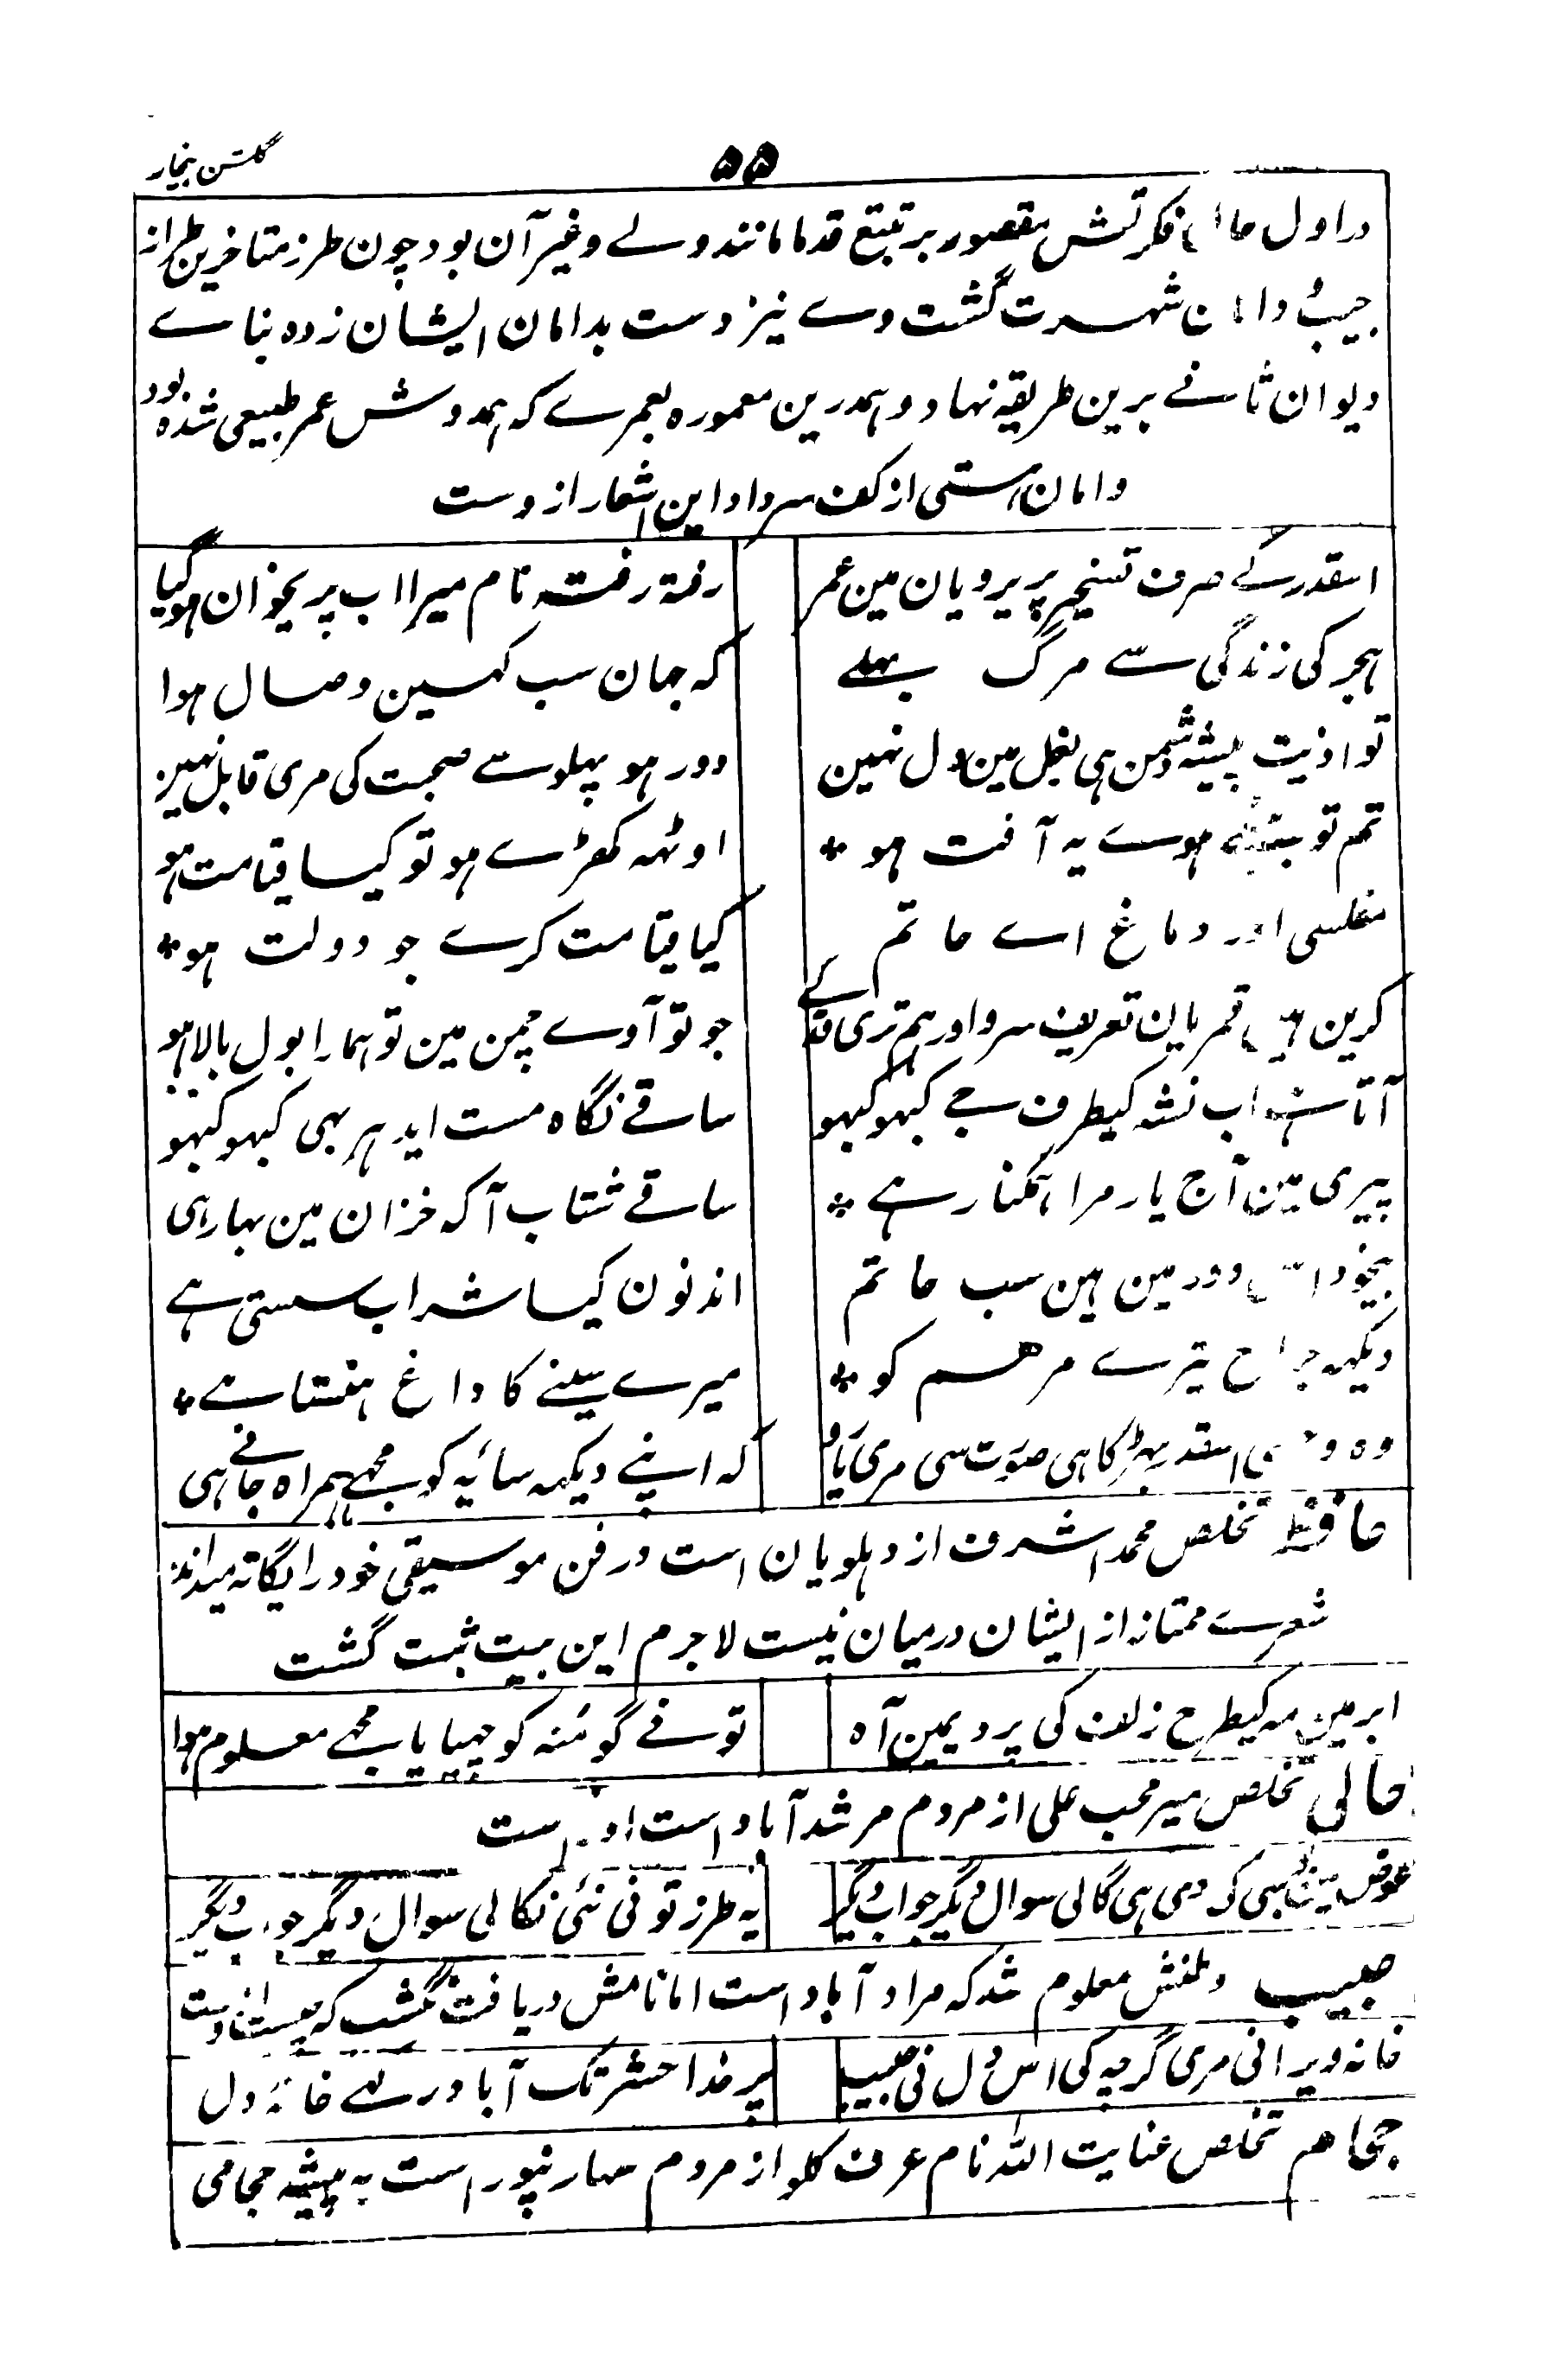 گلشن بیخار
۵۵
در اول حال فکرتش مقصور بر تتبع قدما مانند ولے وغیر آن بود چون طرز متاخرین طراز
جیب و دامان شہرت گشت وے نیز دست بدامان ایشان زدہ بناے
دیوان ثانے برین طریقہ نہاد و ہمدرین معمورہ بعمرے کہ ہمدوش عمر طبیعی شدہ بود
دامان ہستی از کف سرداد این اشعار ازوست
اسقدر کے صرف تسخیر پریرویان مین عمر
رفتہ رفتہ نام میرا اب پریخوان ہوگیا
ہجر کی زندگی سے مرگ بہلے
کہ جہان سب کہین وصال ہوا
تو اذیت پیشہ دشمن ہی بغل مین دل نہین
دور ہو پہلو سے صحبت کی مری قابل نہین
تم تو بیٹھے ہوے یہ آفت ہو *
اوٹہہ کھڑے ہو تو کیا قیامت ہو
مفلسی اور دماغ اے حاتم
کیا قیامت کرے جو دولت ہو *
کرین ہین قمریان تعریف سرو اور ہم تری قد کے
جو تو آوے چمن مین تو ہمارا بول بالا ہو
آتا ہے اب نشہ کیطرف جے کبہو کبہو
ساقے نگاہ مست ایدہر بہی کبہو کبہو
پیری مین آج یار مرا ہمکنار ہے *
ساقے شتاب آ کہ خزان مین بہار ہی
بیخود اس دور مین ہین سب حاتم
اندنون کیا شراب سستی ہے
دیکہہ جراح تیرے مرہم کو *
میرے سینے کا داغ ہنستا ہے *
وہ وحشی اسقدر بہڑکا ہی صورت سی مری یارو
کہ اپنے دیکہہ سایہ کو مجہے ہمراہ جانے ہی
حافظ تخلص محمد اشرف از دہلویان است در فن موسیقی خود را یگانہ میداند
شعرے ممتاز از ایشان درمیان نیست لاجرم این بیت ثبت گشت
ابر مین مہ کیطرح زلف کی پردیمین آہ
تونے گو منہ کو چہپایا پہ مجہے معلوم ہوا
حالی تخلص میر محب علی از مردم مرشدآباد است اوراست
عوض کی دی ہی گالی سوال دیگر جواب دیگر
یہ طرز تو نی نئی نکالی سوال دیگر جواب دیگر
حبیب وطنش معلوم شد کہ مرادآباد است اما نامش دریافت نگشت کہ چیست ازوست
خانہ ویرانی مری گرچہ کی اس دل نی حبیب
پر خدا حشر تک آباد رکھے خانۂ دل
حجام تخلص عنایت اللہ نام عرف کلو از مردم سہارنپور است بہ پیشہ حجامی